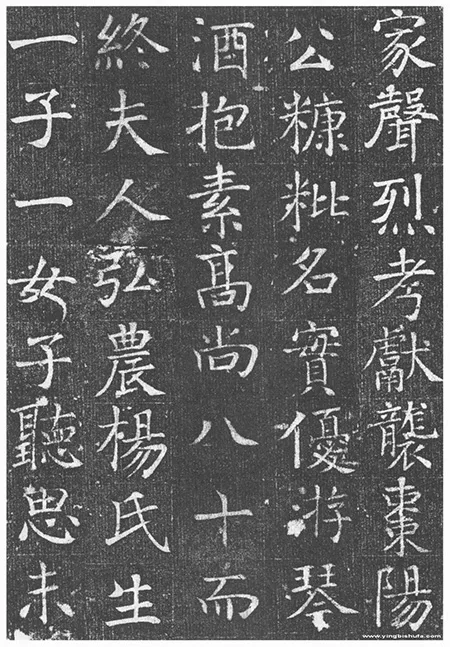 家聲烈考獻襲棗陽
公糠粃名實優游琴
酒抱素髙尚八十而
終夫人弘農楊氏生
一子一女子聽思未
www.yingbishufa.com